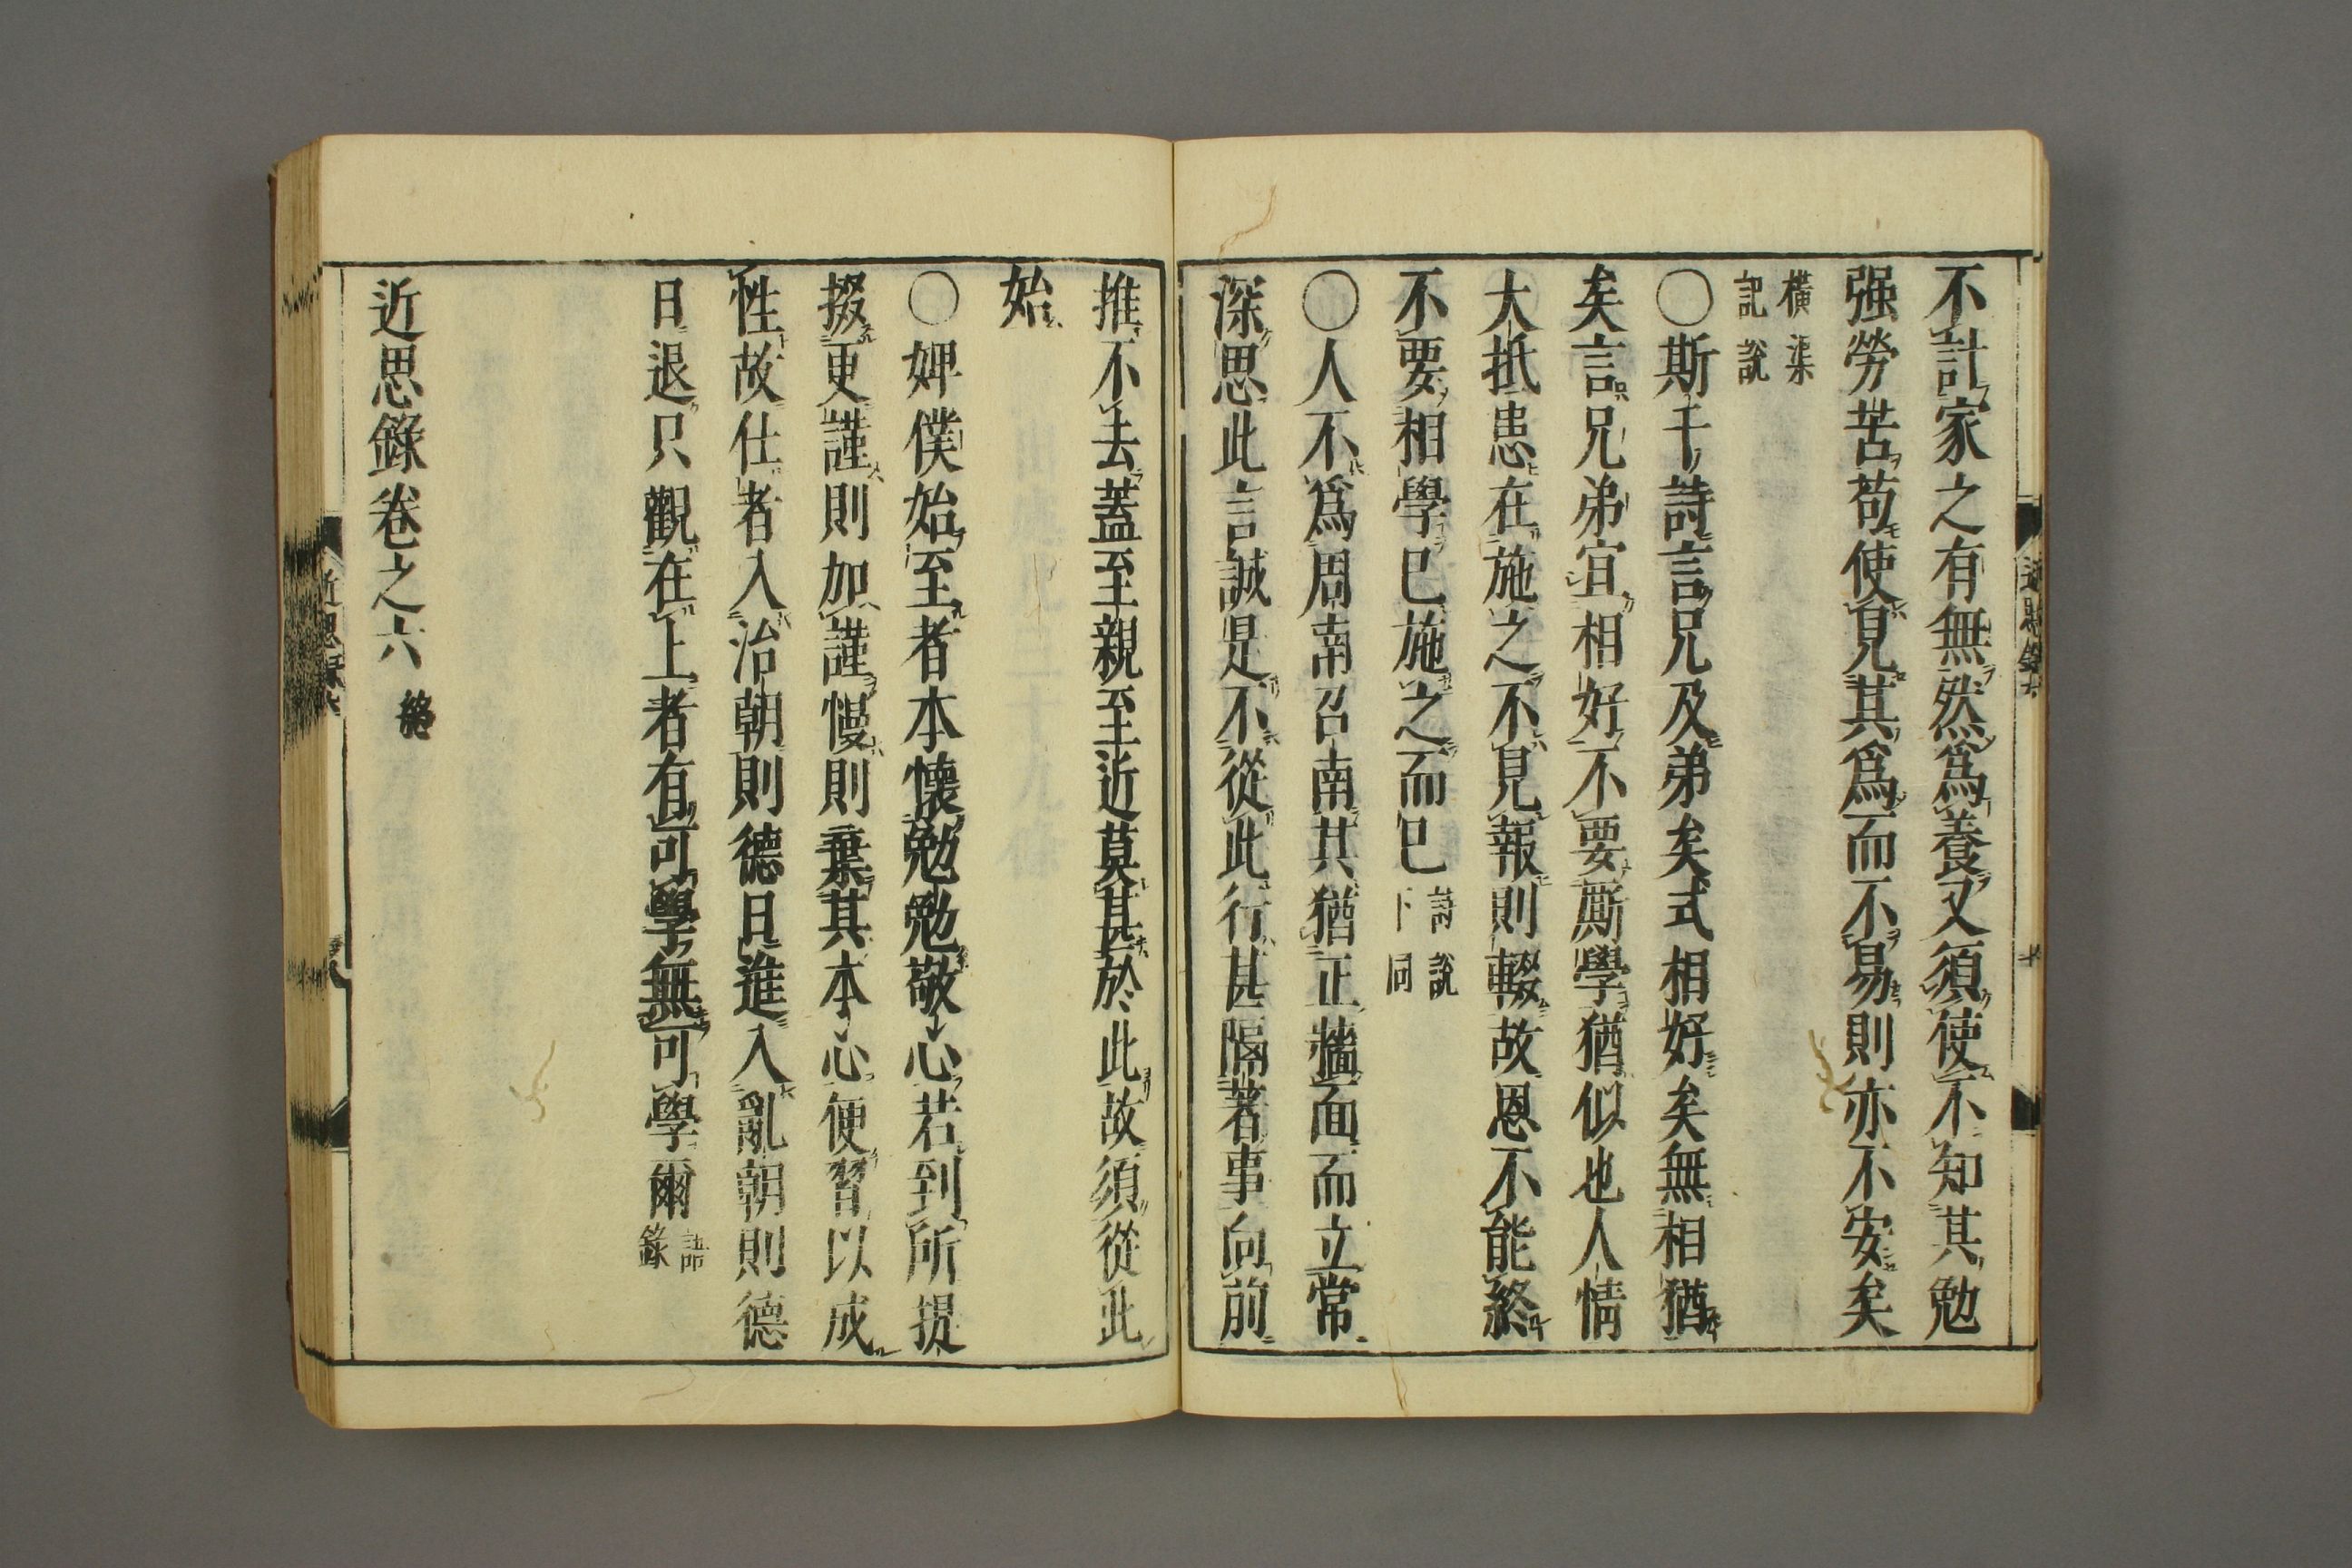 不計家之有無然爲養又須使不知其勉
强勞苦苟使見其爲而不易則亦不安矣
橫渠
記說
〇斯干詩言兄及弟矣式相好矣無相猶
矣言兄弟宜相好不要厮學猶似也人情
大抵患在施之不見報則輟故恩不能終
不要相學已施之而已
詩說
下同
〇人不爲周南召南其猶正牆面而立常
深思此言誠是不從此行甚隔著事向前
推不去蓋至親至近莫甚於此故須從此
始
〇婢僕始至者本懷勉勉敬心若到所提
掇更謹則加謹慢則棄其本心便習以成
性故仕者入治朝則德日進入亂朝則德
日退只觀在上者有可學無可學爾
語
錄
近思錄卷之六 終
近思錄六